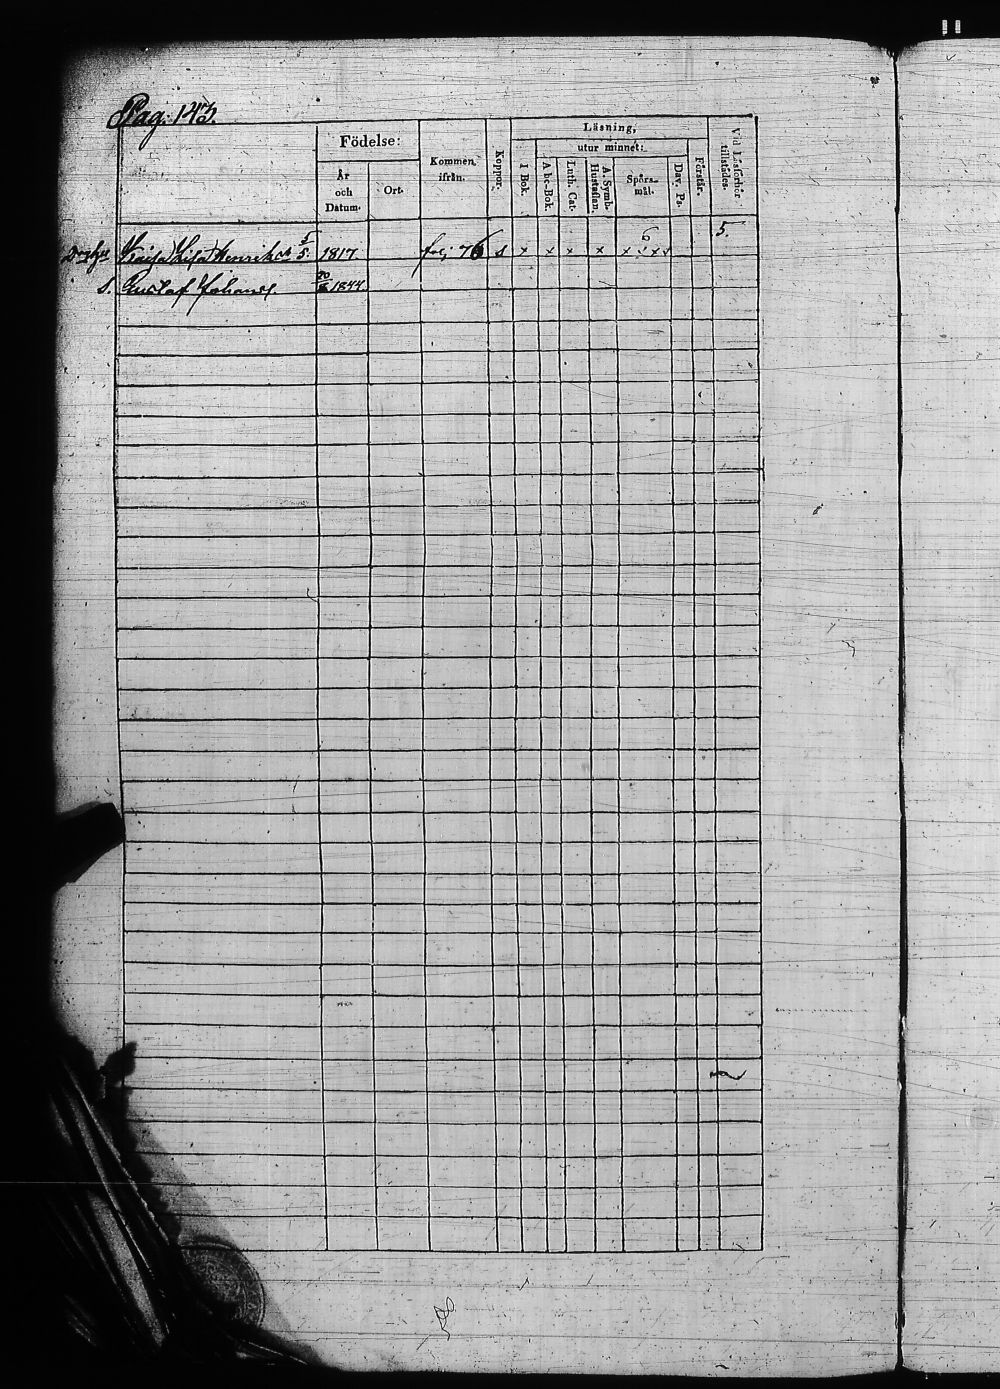 Pag. 143.
Födelse:
År och Datum.
Ort.
Kommen ifrån.
Koppor.
Läsning,
I Bok.
utur minnet:
Abc-Bok.
Luth. Cat.
A. Symb. Hustaflan.
Spörsmål.
Dav. Ps.
Förstår.
Vid Läsförhör tillstädes.
Kaisa Lisa Henriksd. 5/5. 1817 folj 76 s x x x x 6 x x x x 5.
S. Gustaf Johans 1844